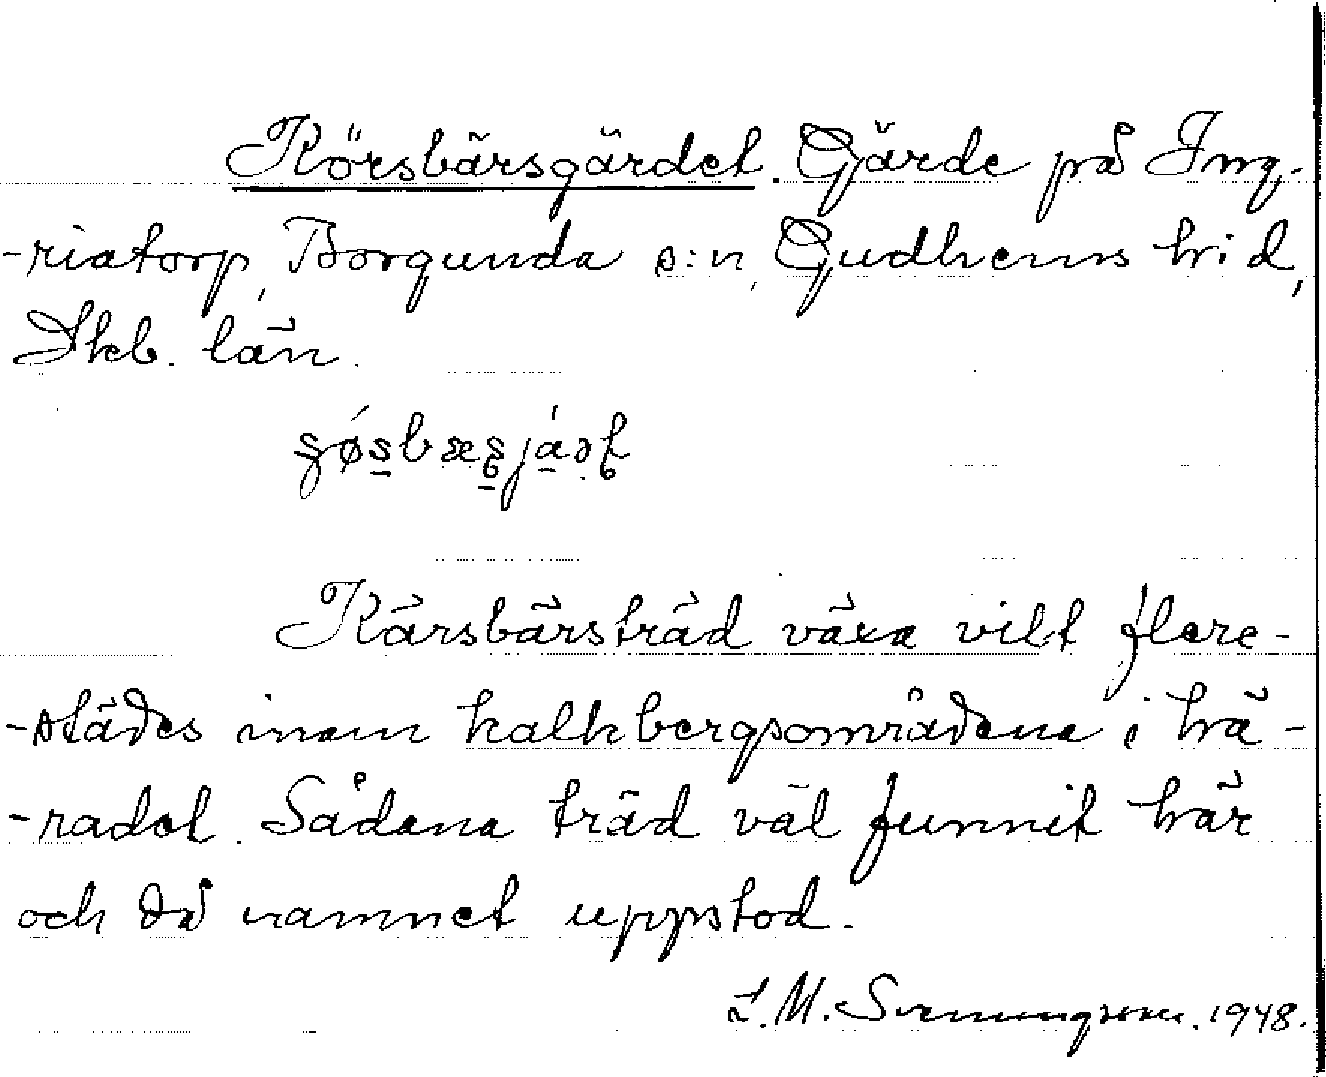 Körsbärsgärdet. Gärde på Ing-
-riatorp, Borgunda s:n, Gudhems hd,
Skb. län.
Kärsbärsträd växa vilt flere-
-städes inom kalkbergsområdena i hä-
-radet. Sådana träd väl funnit här
och då namnet uppstod.
L. M. Svenungsson. 1948.